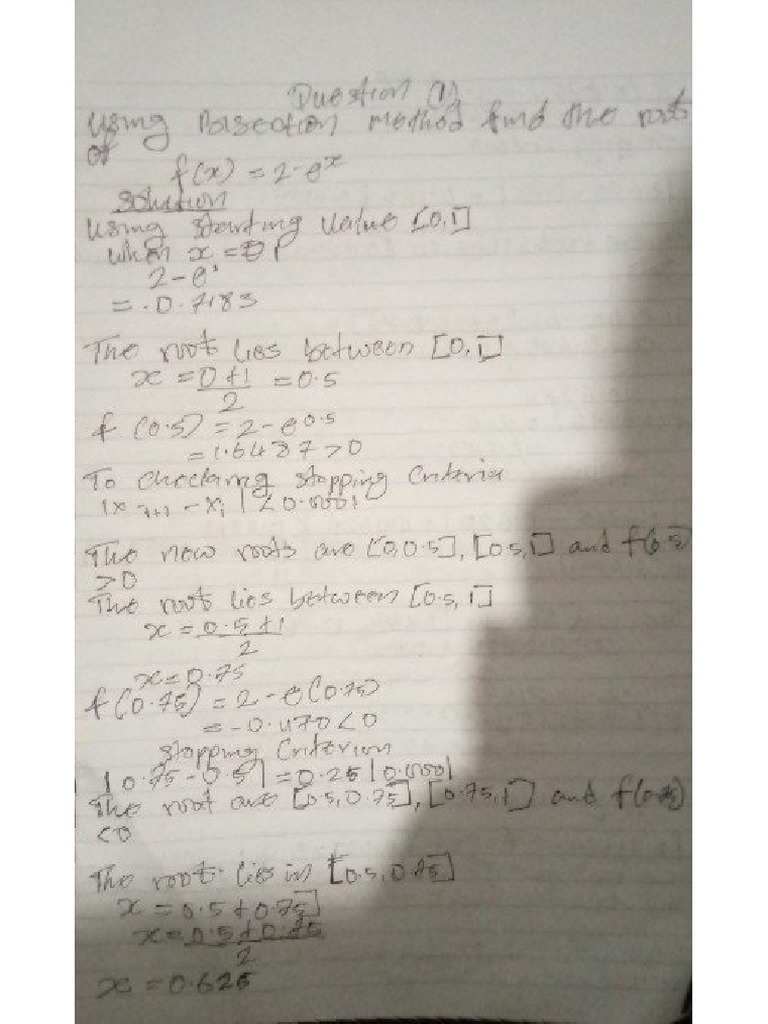 Question (1)
Using Bisection method find the root
of
f(x) = 2-e^x
Solution
Using starting value [0,1]
when x = 1
2-e^1
= -0.7183
The root lies between [0,1]
x = 0+1 = 0.5
2
f (0.5) = 2-e^0.5
= 1.6487>0
To checking stopping Criteria
|x i+1 - xi | < 0.0001
The new roots are [0,0.5], [0.5,1] and f(0.5)
>0
The root lies between [0.5, 1]
x = 0.5+1
2
x=0.75
f(0.75) = 2-e(0.75)
= -0.1170<0
Stopping Criterion
|0.75-0.5|=0.25|0.0001
The root are [0.5,0.75], [0.75,1] and f(0.75)
<0
The root lies in [0.5,0.75]
x = 0.5+0.75]
x = 0.5+0.75
2
x = 0.625